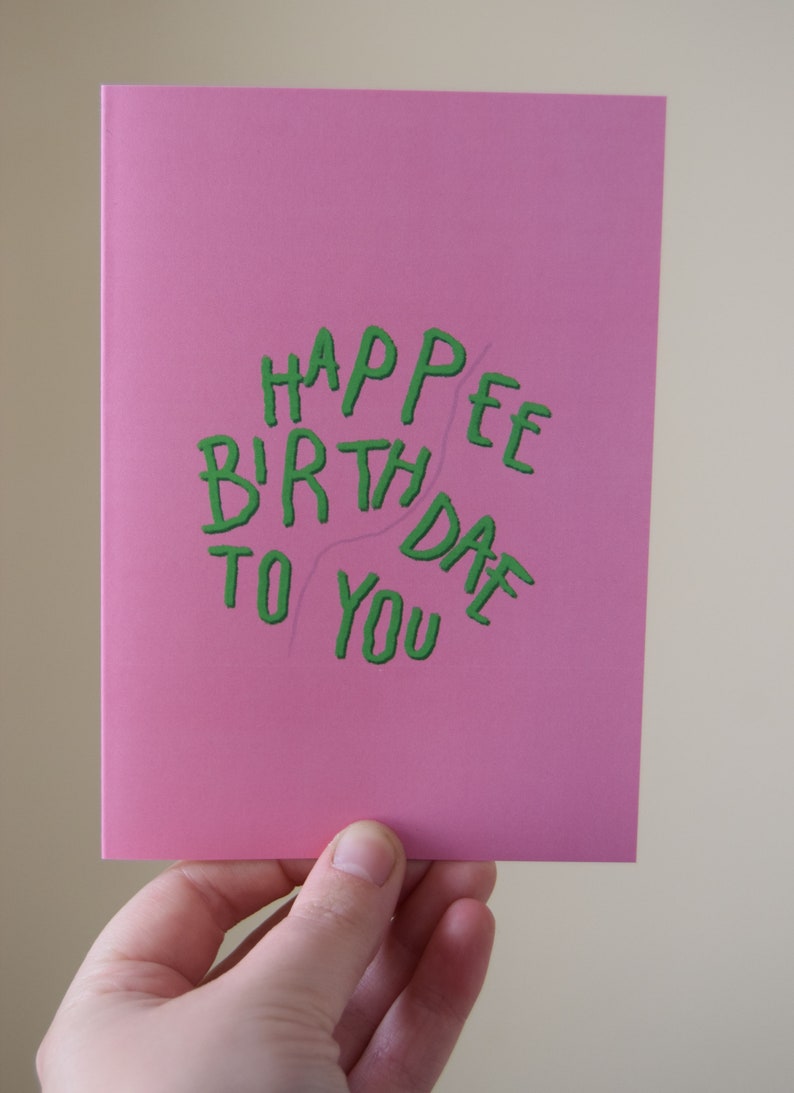 HAPPEE
BIRTHDAE
TO YOU